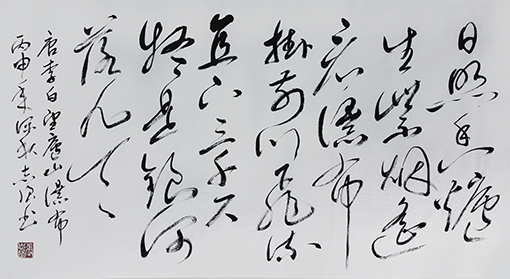 日照香爐
生紫烟遙
看瀑布
掛前川飛流
直下三千尺
疑是銀河
落九天
唐李白望廬山瀑布
丙申年深秋志书